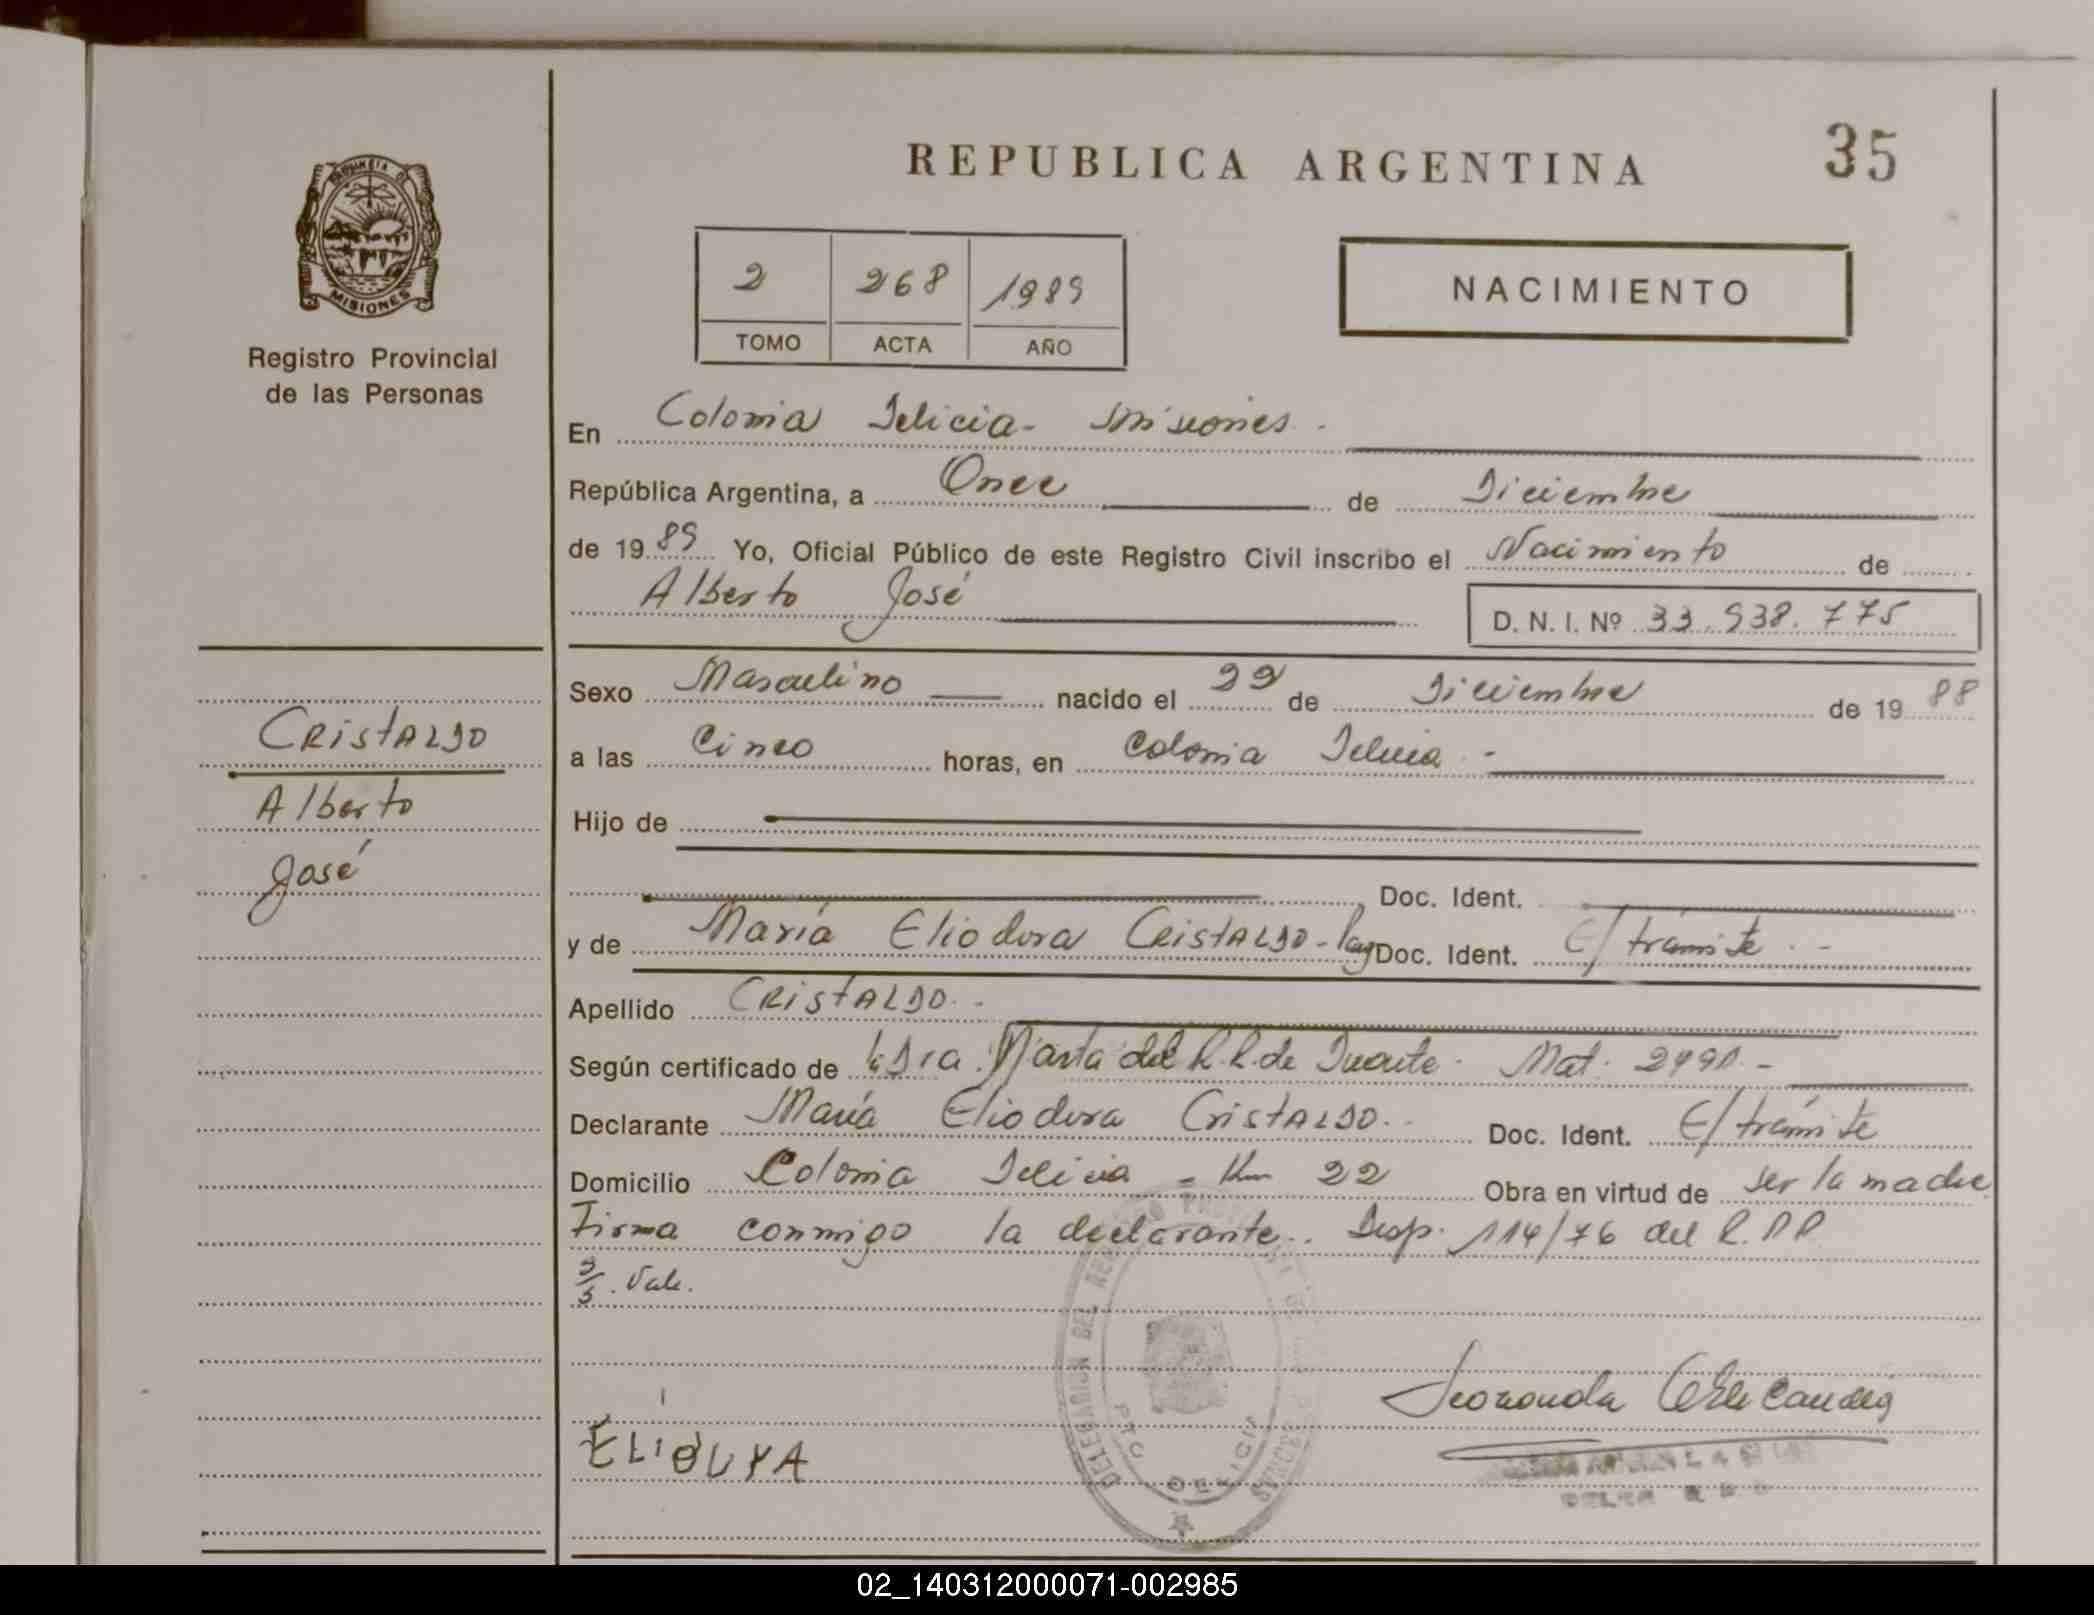 REPUBLICA ARGENTINA
35
PROVINCIA DE
MISIONES
Registro Provincial
de las Personas
2 268 1989
TOMO ACTA AÑO
NACIMIENTO
En Colonia Delicia - Misiones.-
República Argentina, a Once de Diciembre
de 1989 Yo, Oficial Público de este Registro Civil inscribo el Nacimiento de
Alberto José
D. N. I. Nº 33.938.775
Sexo Masculino nacido el 22 de Diciembre de 1988
a las Cinco horas, en Colonia Delicia.-
Hijo de
Doc. Ident.
y de María Eliodora CRISTALDO - Doc. Ident. E/ trámite.-
Apellido CRISTALDO.-
Según certificado de Dra. Marta del R. R. de Duarte. Mat.
Declarante María Eliodora CRISTALDO.- Doc. Ident. E/ trámite
Domicilio Colonia Delicia - Km 22 Obra en virtud de ser la madre
Firma conmigo la declarante.. Disp. 114/76 del R.P.P.
Vale.
CRISTALDO
Alberto
José
DELEGACION DEL REGISTRO PROVINCIAL DE LAS PERSONAS
PTO DELICIA
02_140312000071-002985